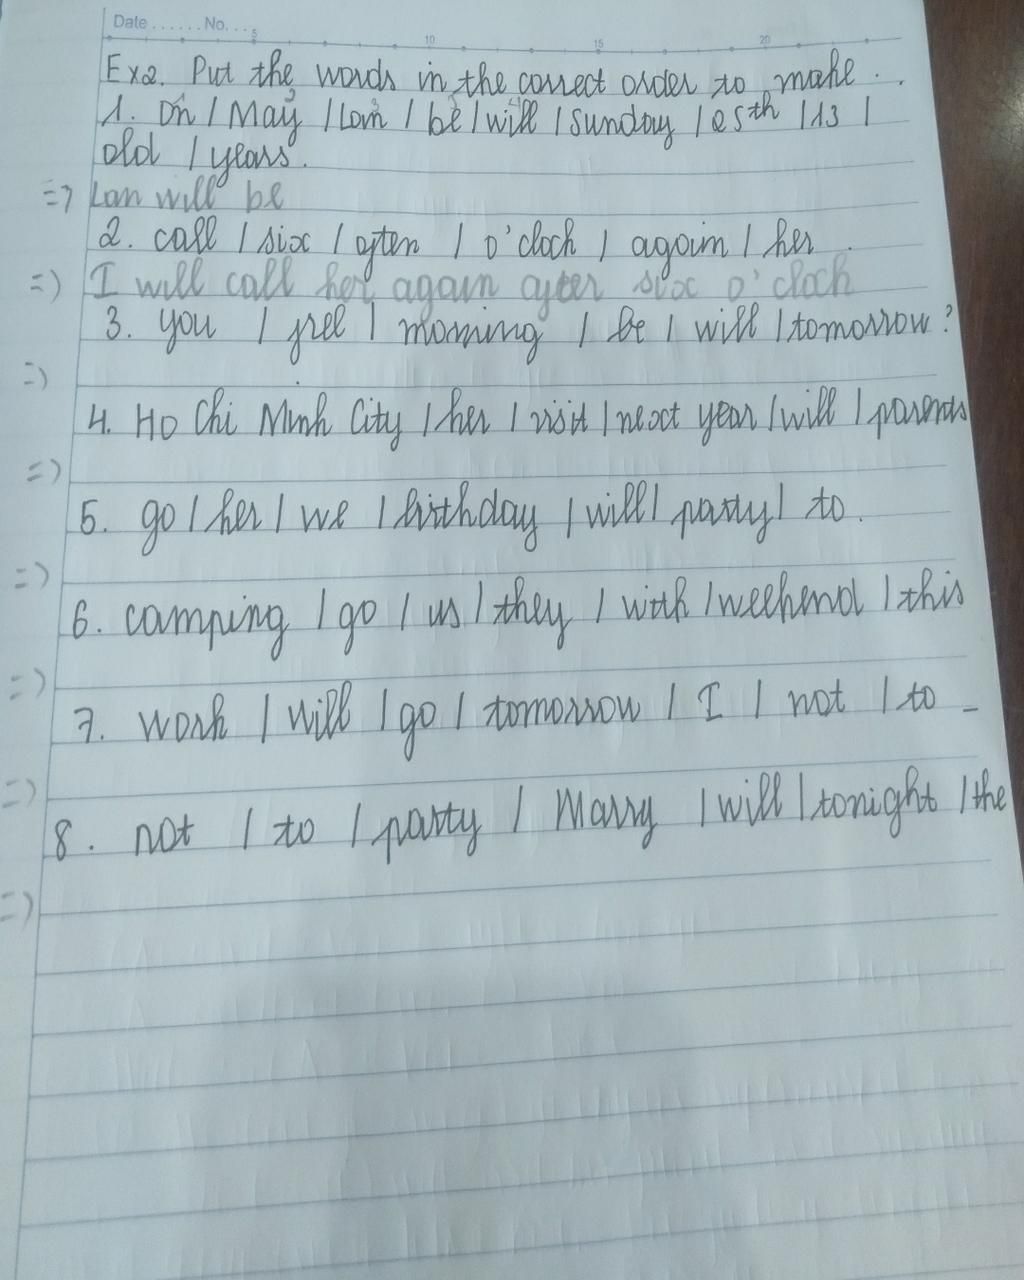 Date ...... No. ...
5 10 15 20
Ex2. Put the words in the correct order to make ..
1. On / May / Lan / be / will / Sunday / 25th / 13 /
old / years.
=> Lan will be
2. call / six / after / o'clock / again / her .
=> I will call her again after six o'clock
3. you / free / morning / be / will / tomorrow ?
=>
4. Ho Chi Minh City / her / visit / next year / will / parents
=>
5. go / her / we / birthday / will / party / to .
=>
6. camping / go / us / they / with / weekend / this
=>
7. work / will / go / tomorrow / I / not / to _
=>
8. not / to / party / Marry / will / tonight / the
=>